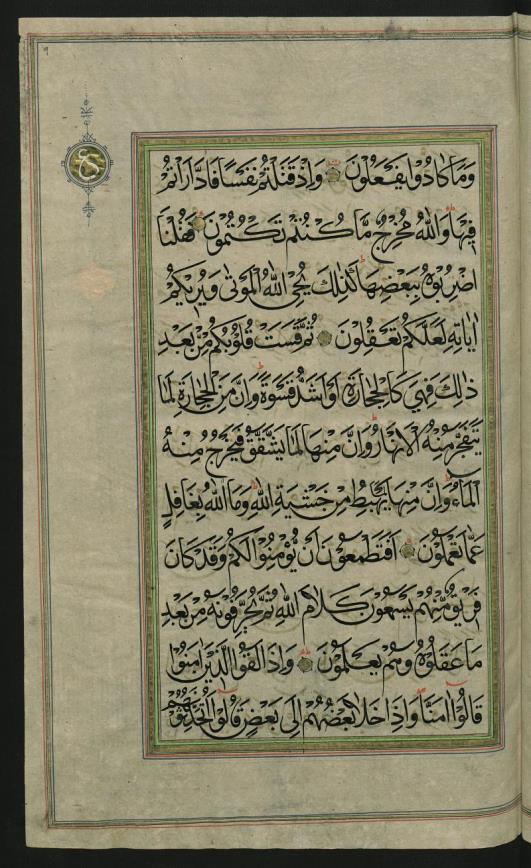 وَمَا كَادُوا يَفْعَلُونَ وَاِذْ قَتَلْتُمْ نَفْسًا فَادَّارَأْتُمْ
فِيهَا وَاللّٰهُ مُخْرِجٌ مَا كُنْتُمْ تَكْتُمُونَ فَقُلْنَا
اضْرِبُوهُ بِبَعْضِهَا كَذٰلِكَ يُحْيِ اللّٰهُ الْمَوْتٰى وَيُرِيكُمْ
اٰيَاتِهِ لَعَلَّكُمْ تَعْقِلُونَ ثُمَّ قَسَتْ قُلُوبُكُمْ مِنْ بَعْدِ
ذٰلِكَ فَهِيَ كَالْحِجَارَةِ اَوْ اَشَدُّ قَسْوَةً وَاِنَّ مِنَ الْحِجَارَةِ لَمَا
يَتَفَجَّرُ مِنْهُ الْاَنْهَارُ وَاِنَّ مِنْهَا لَمَا يَشَّقَّقُ فَيَخْرُجُ مِنْهُ
الْمَاءُ وَاِنَّ مِنْهَا لَمَا يَهْبِطُ مِنْ خَشْيَةِ اللّٰهِ وَمَا اللّٰهُ بِغَافِلٍ
عَمَّا تَعْمَلُونَ اَفَتَطْمَعُونَ اَنْ يُؤْمِنُوا لَكُمْ وَقَدْ كَانَ
فَرِيقٌ مِنْهُمْ يَسْمَعُونَ كَلَامَ اللّٰهِ ثُمَّ يُحَرِّفُونَهُ مِنْ بَعْدِ
مَا عَقَلُوهُ وَهُمْ يَعْلَمُونَ وَاِذَا لَقُوا الَّذِينَ اٰمَنُوا
قَالُوا اٰمَنَّا وَاِذَا خَلَا بَعْضُهُمْ اِلٰى بَعْضٍ قَالُوا اَتُحَدِّثُونَهُمْ